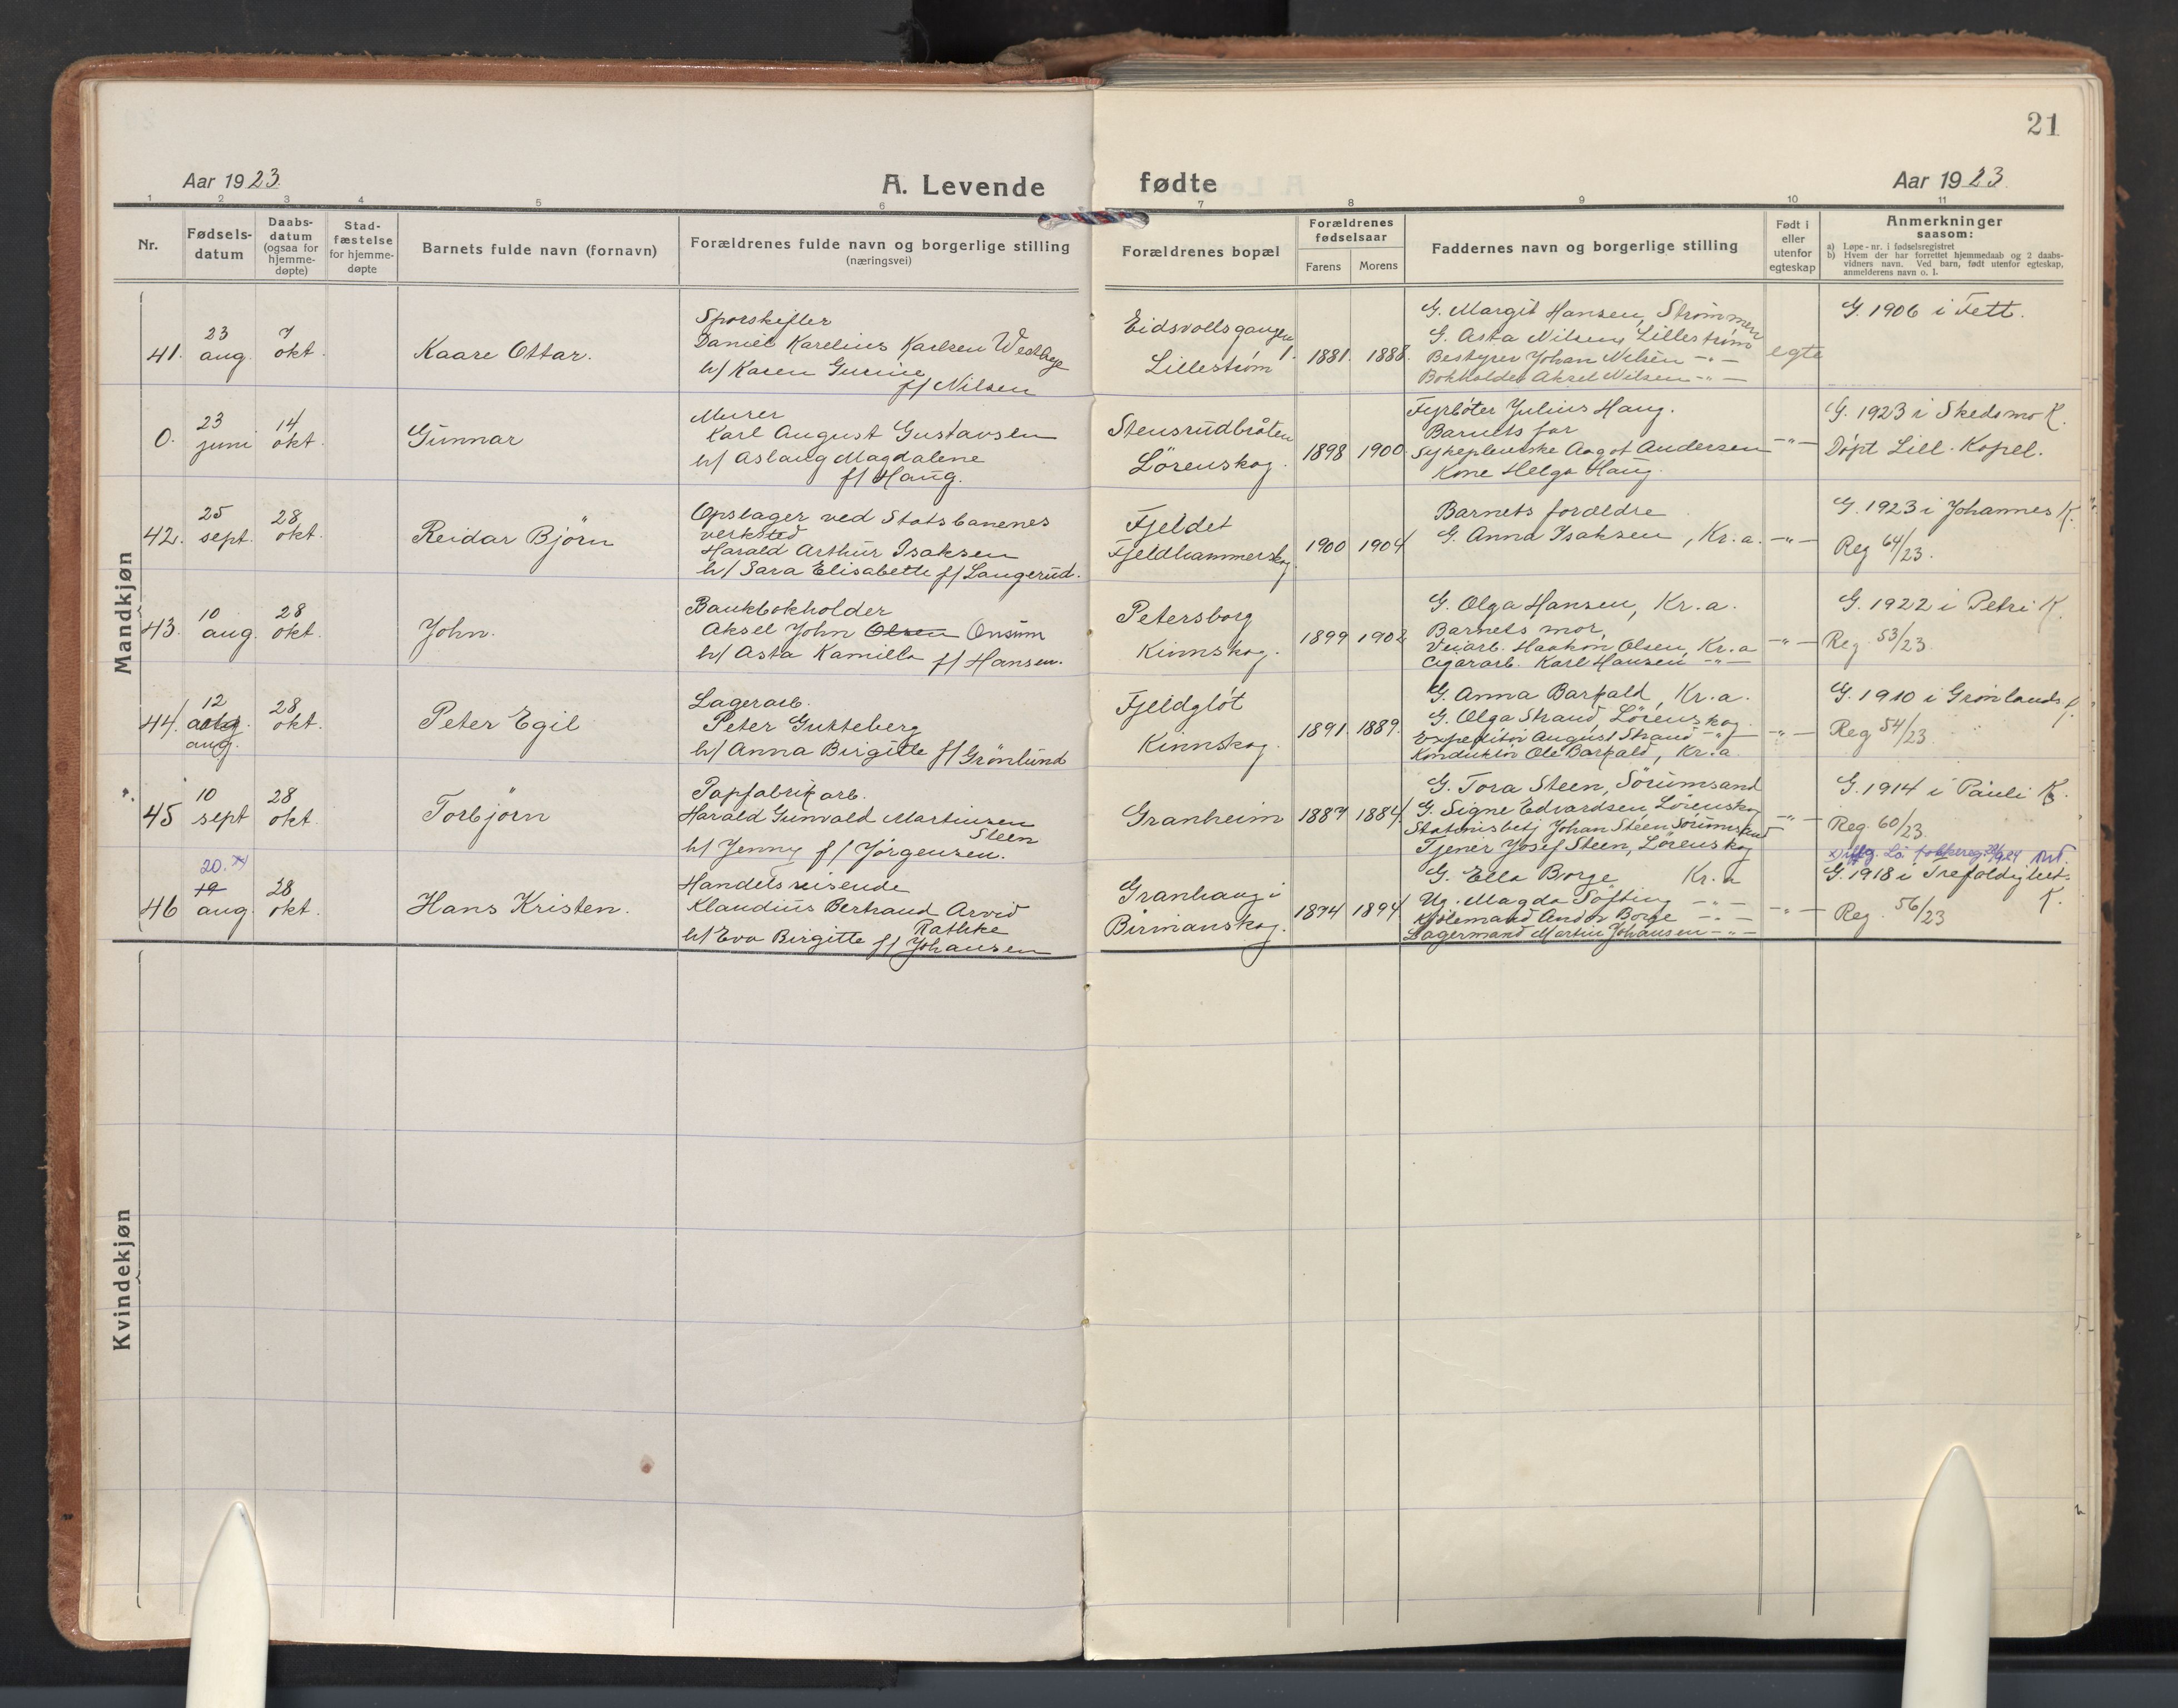 21
Aar 1923.
A. Levende fødte
Aar 1923
1 2 3 4 5 6 7 8 9 10 11
Nr.
Fødsels-
datum
Daabs-
datum
(ogsaa for
hjemme-
døpte)
Stad-
fæstelse
for hjemme-
døpte
Barnets fulde navn (fornavn)
Forældrenes fulde navn og borgerlige stilling
(næringsvei)
Forældrenes bopæl
Forældrenes
fødselsaar
Farens
Morens
Faddernes navn og borgerlige stilling
Født i
eller
utenfor
egteskap
Anmerkninger
saasom:
a) Løpe-nr. i fødselsregistret
b) Hvem der har forrettet hjemmedaab og 2 daabs-
vidners navn. Ved barn, født utenfor egteskap,
anmelderens navn o. l.
Mandkjøn
41.
23
aug.
7
okt.
Kaare Ottar.
Sporskifter
Daniel Karelius Karlsen Westbye
h/ Karen Gurine
f/ Nilsen
Eidsvollsgangen
1.
Lillestrøm
1881.
1888.
G. Margit Hansen, Strømmen
G. Asta Nilsen, Lillestrøm
Bestyrer Johan Nilsen -"-
Bokholder Aksel Nilsen -"-
egte
G. 1906 i Fett.
0.
23
juni
14
okt.
Gunnar
Murer
Karl August Gustavsen
h/ Aslaug Magdalene
f/ Haug.
Stensrudbråten
Lörenskog.
1898
1900.
Fyrbøter Julius Haug.
Barnets far
Sykepleierske Aagot Andersen
Kone Helga Haug.
-"-
G. 1923 i Skedsmo K.
Døpt Lill. Kapel.
42.
25
sept.
28
okt.
Reidar Björn
Opslager ved Statsbanenes
verksted
Harald Arthur Isaksen
h/ Sara Elisabeth f/ Langerud.
Fjeldet
Fjeldhammerskog
1900
1904
Barnets forældre
G. Anna Isaksen, Kr.a.
-"-
G. 1923 i Johannes K.
Reg 64/23.
43.
10
aug.
28
okt.
John.
Bankbokholder
Aksel John Olsen Onsum
h/ Asta Kamilla f/ Hansen.
Petersborg
Kinnskog.
1899
1902
G. Olga Hansen, Kr.a.
Barnets mor,
Veiarb. Haakon Olsen, Kr.a
Cigararb. Karl Hansen -"-
-"-
G. 1922 i Petri K.
Reg. 53/23.
44.
12
aug.
28
okt.
Peter Egil
Lagerarb.
Peter Gutteberg
h/ Anna Birgitte f/ Grönlund
Fjeldgløt
Kinnskog.
1891.
1889.
G. Anna Barkald, Kr.a.
G. Olga Strand, Lörenskog.
Expeditör August Strand -"-
Konduktör Ole Barkald, Kr.a
-"-
G. 1910 i Grönlands K.
Reg 54/23.
45
10
sept
28
okt.
Torbjörn
Papfabrikarb.
Harald Gunvald Martinsen
Steen
h/ Jenny f/ Jörgensen.
Granheim
1887
1884
G. Tora Steen, Sörumsand
G. Signe Edvardsen Lörenskog
Stationsbetj Johan Steen Sörumsand
Tjener Josef Steen, Lörenskog
-"-
G. 1914 i Pauli K.
Reg. 60/23.
46
20. x)
19
aug.
28
okt.
Hans Kristen.
Handelsreisende
Klaudius Bertrand Arvid
Rathke
h/ Eva Birgitte f/ Johansen
Granhaug i
Birmanskog.
1894
1894
G. Ella Borge Kr.a
Ug. Magda Söfting -"-
Andor Borge -"-
Lagermand Martin Johansen -"-
-"-
G. 1918 i Trefoldighet.
K.
Reg. 56/23
Kvindekjøn